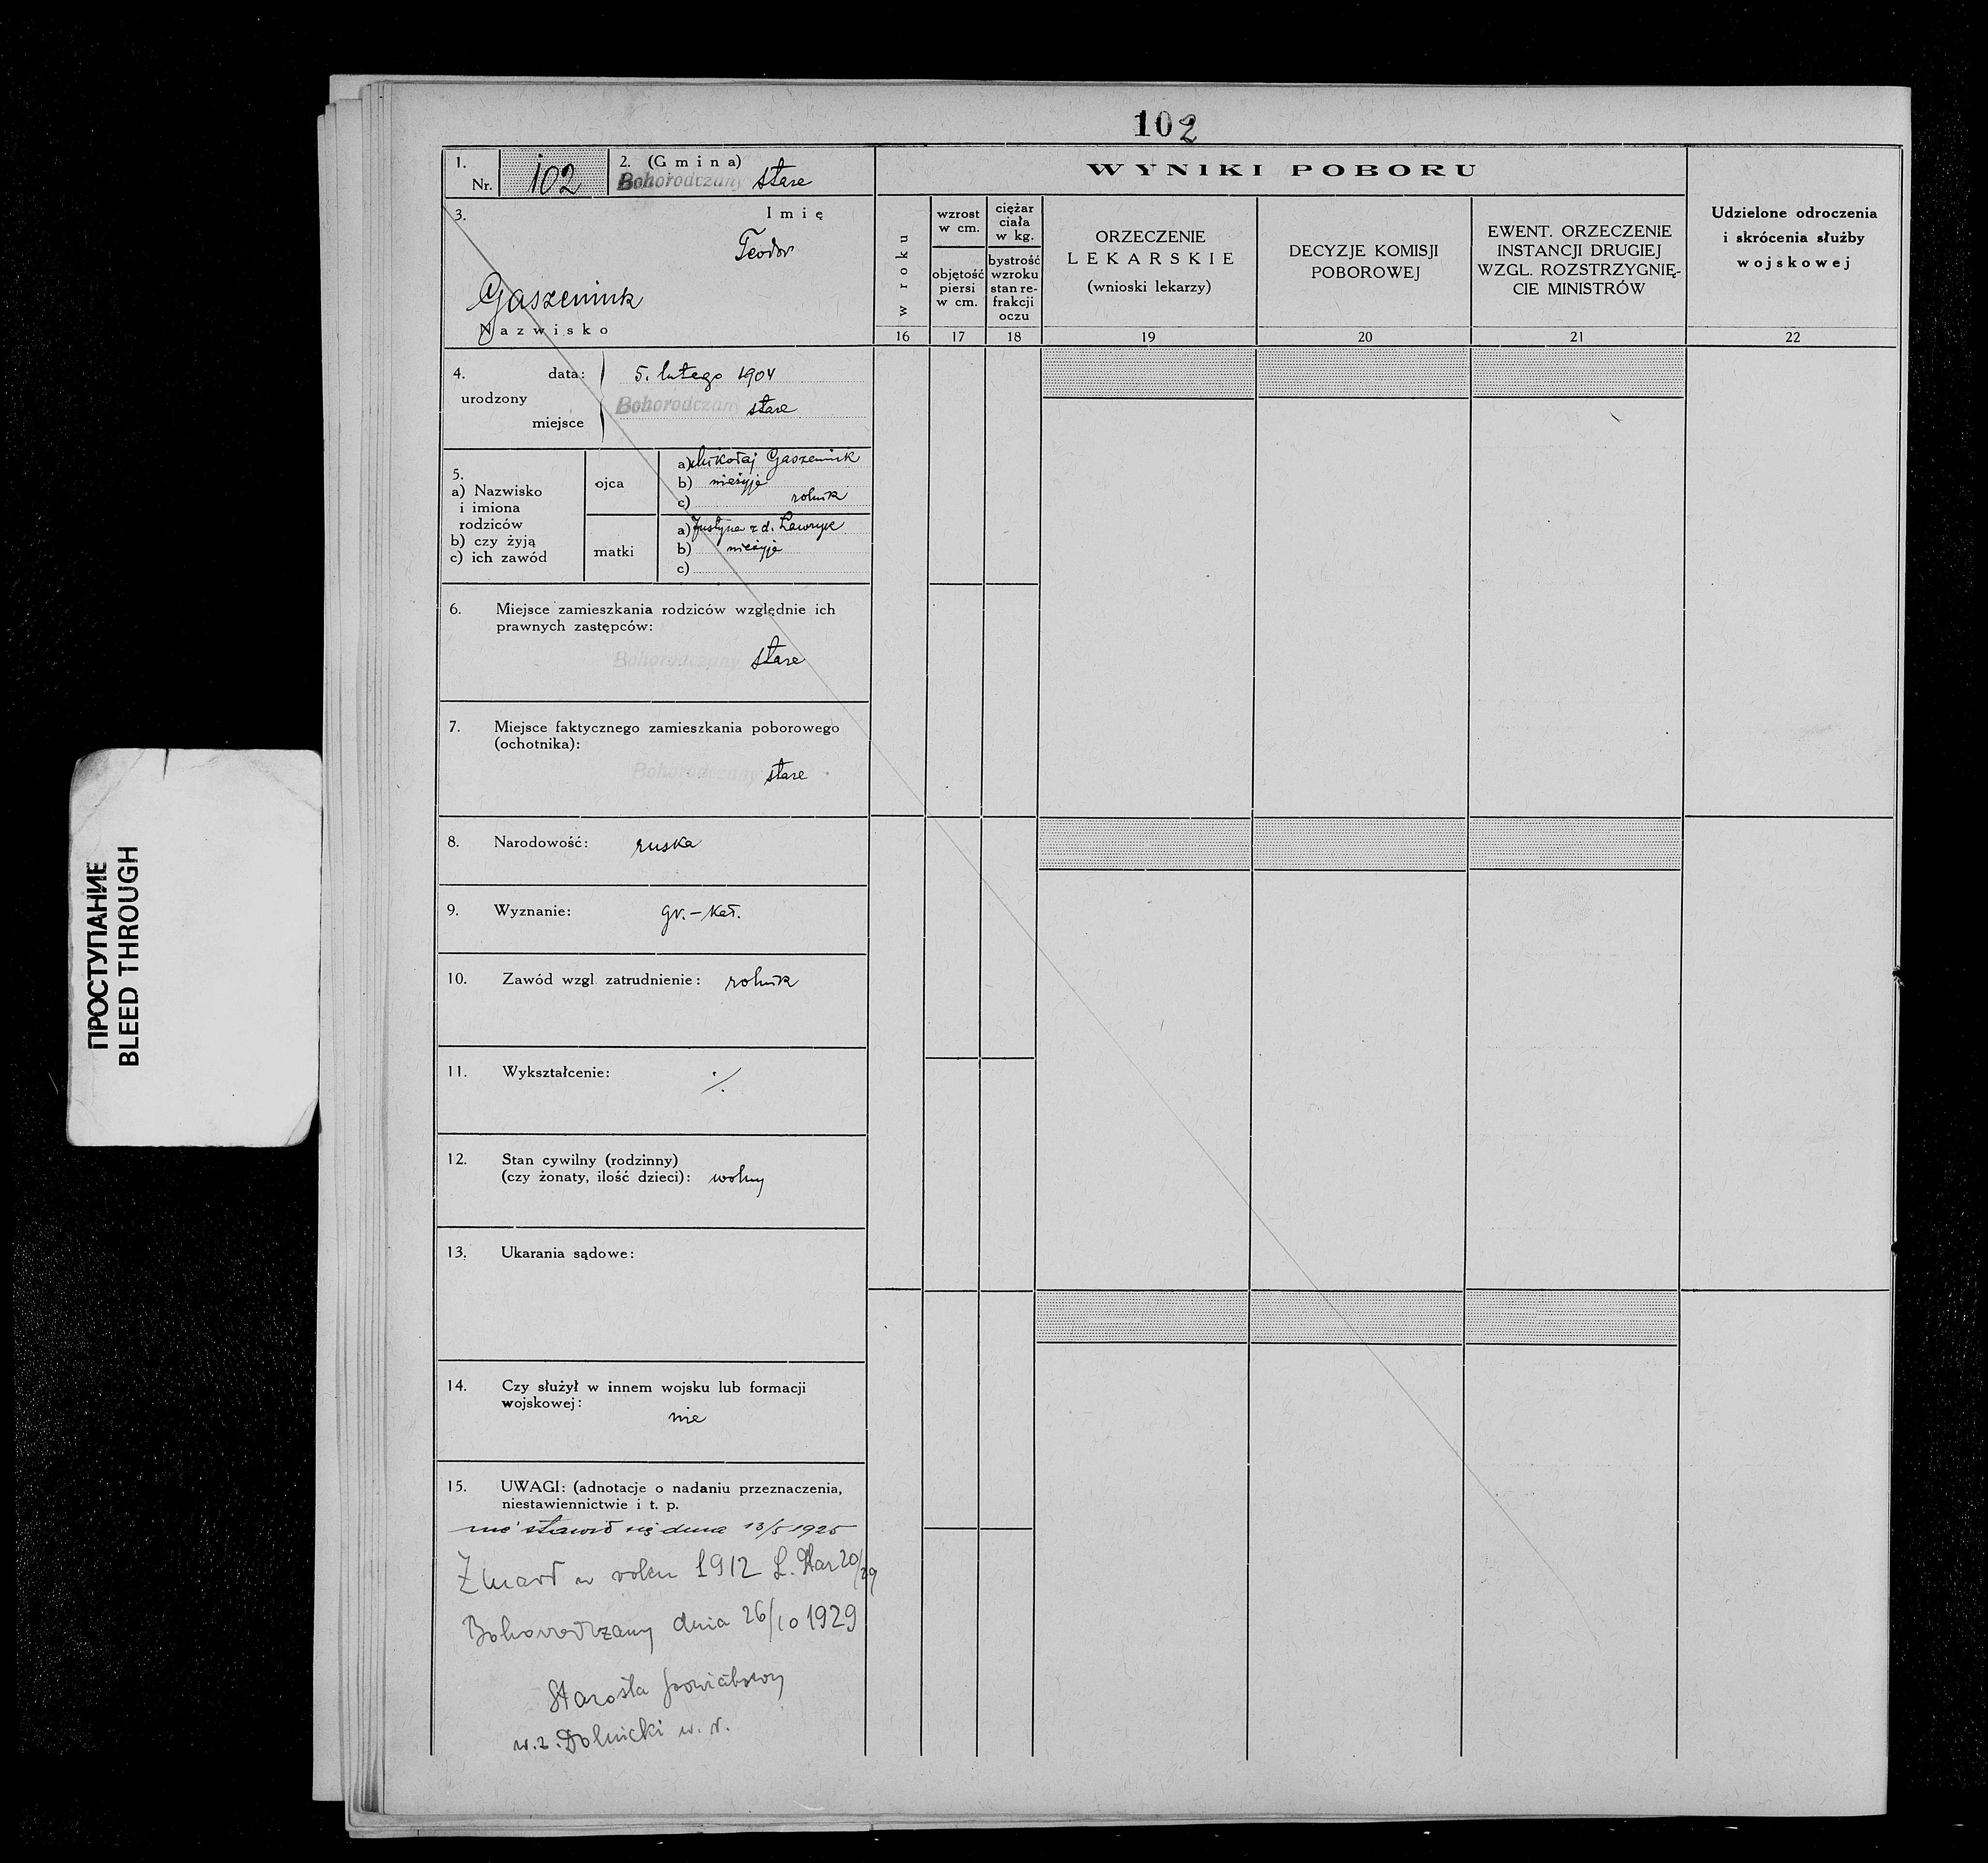 102
1.
Nr. 102
2. (Gmina)
Bohorodczany stare
WYNIKI POBORU
Udzielone odroczenia
i skrócenia służby
wojskowej
3.
Imię
Teodor
Gaszeniuk
Nazwisko
w roku
wzrost
w cm.
objętość
piersi
w cm.
ciężar
ciała
w kg.
bystrość
wzroku
stan re-
frakcji
oczu
ORZECZENIE
LEKARSKIE
(wnioski lekarzy)
DECYZJE KOMISJI
POBOROWEJ
EWENT. ORZECZENIE
INSTANCJI DRUGIEJ
WZGL. ROZSTRZYGNIĘ-
CIE MINISTRÓW
16 17 18 19 20 21 22
4.
urodzony
data: 5. lutego 1904
miejsce Bohorodczany stare
5.
a) Nazwisko
i imiona
rodziców
b) czy żyją
c) ich zawód
ojca
a) Mikołaj Gaszeniuk
b) nieżyje
c) rolnik
matki
a) Justyna z d. Ławryk
b) nieżyje
c)
6. Miejsce zamieszkania rodziców względnie ich
prawnych zastępców:
Bohorodczany stare
7. Miejsce faktycznego zamieszkania poborowego
(ochotnika):
Bohorodczany stare
8. Narodowość: ruska
9. Wyznanie: gr.-kat.
10. Zawód wzgl zatrudnienie: rolnik
11. Wykształcenie: ·/.
12. Stan cywilny (rodzinny)
(czy żonaty, ilość dzieci): wolny
13. Ukarania sądowe:
14. Czy służył w innem wojsku lub formacji
wojskowej:
nie
15. UWAGI: (adnotacje o nadaniu przeznaczenia,
niestawiennictwie i t. p.
nie stawił się dnia 13/5 1925
Zmarł w roku 1912 L. 20/29
Bohorodczany dnia 26/10 1929
Starosta powiatowy
w.z. Dolnicki w. r.
ПРОСТУПАНИЕ
BLEED THROUGH